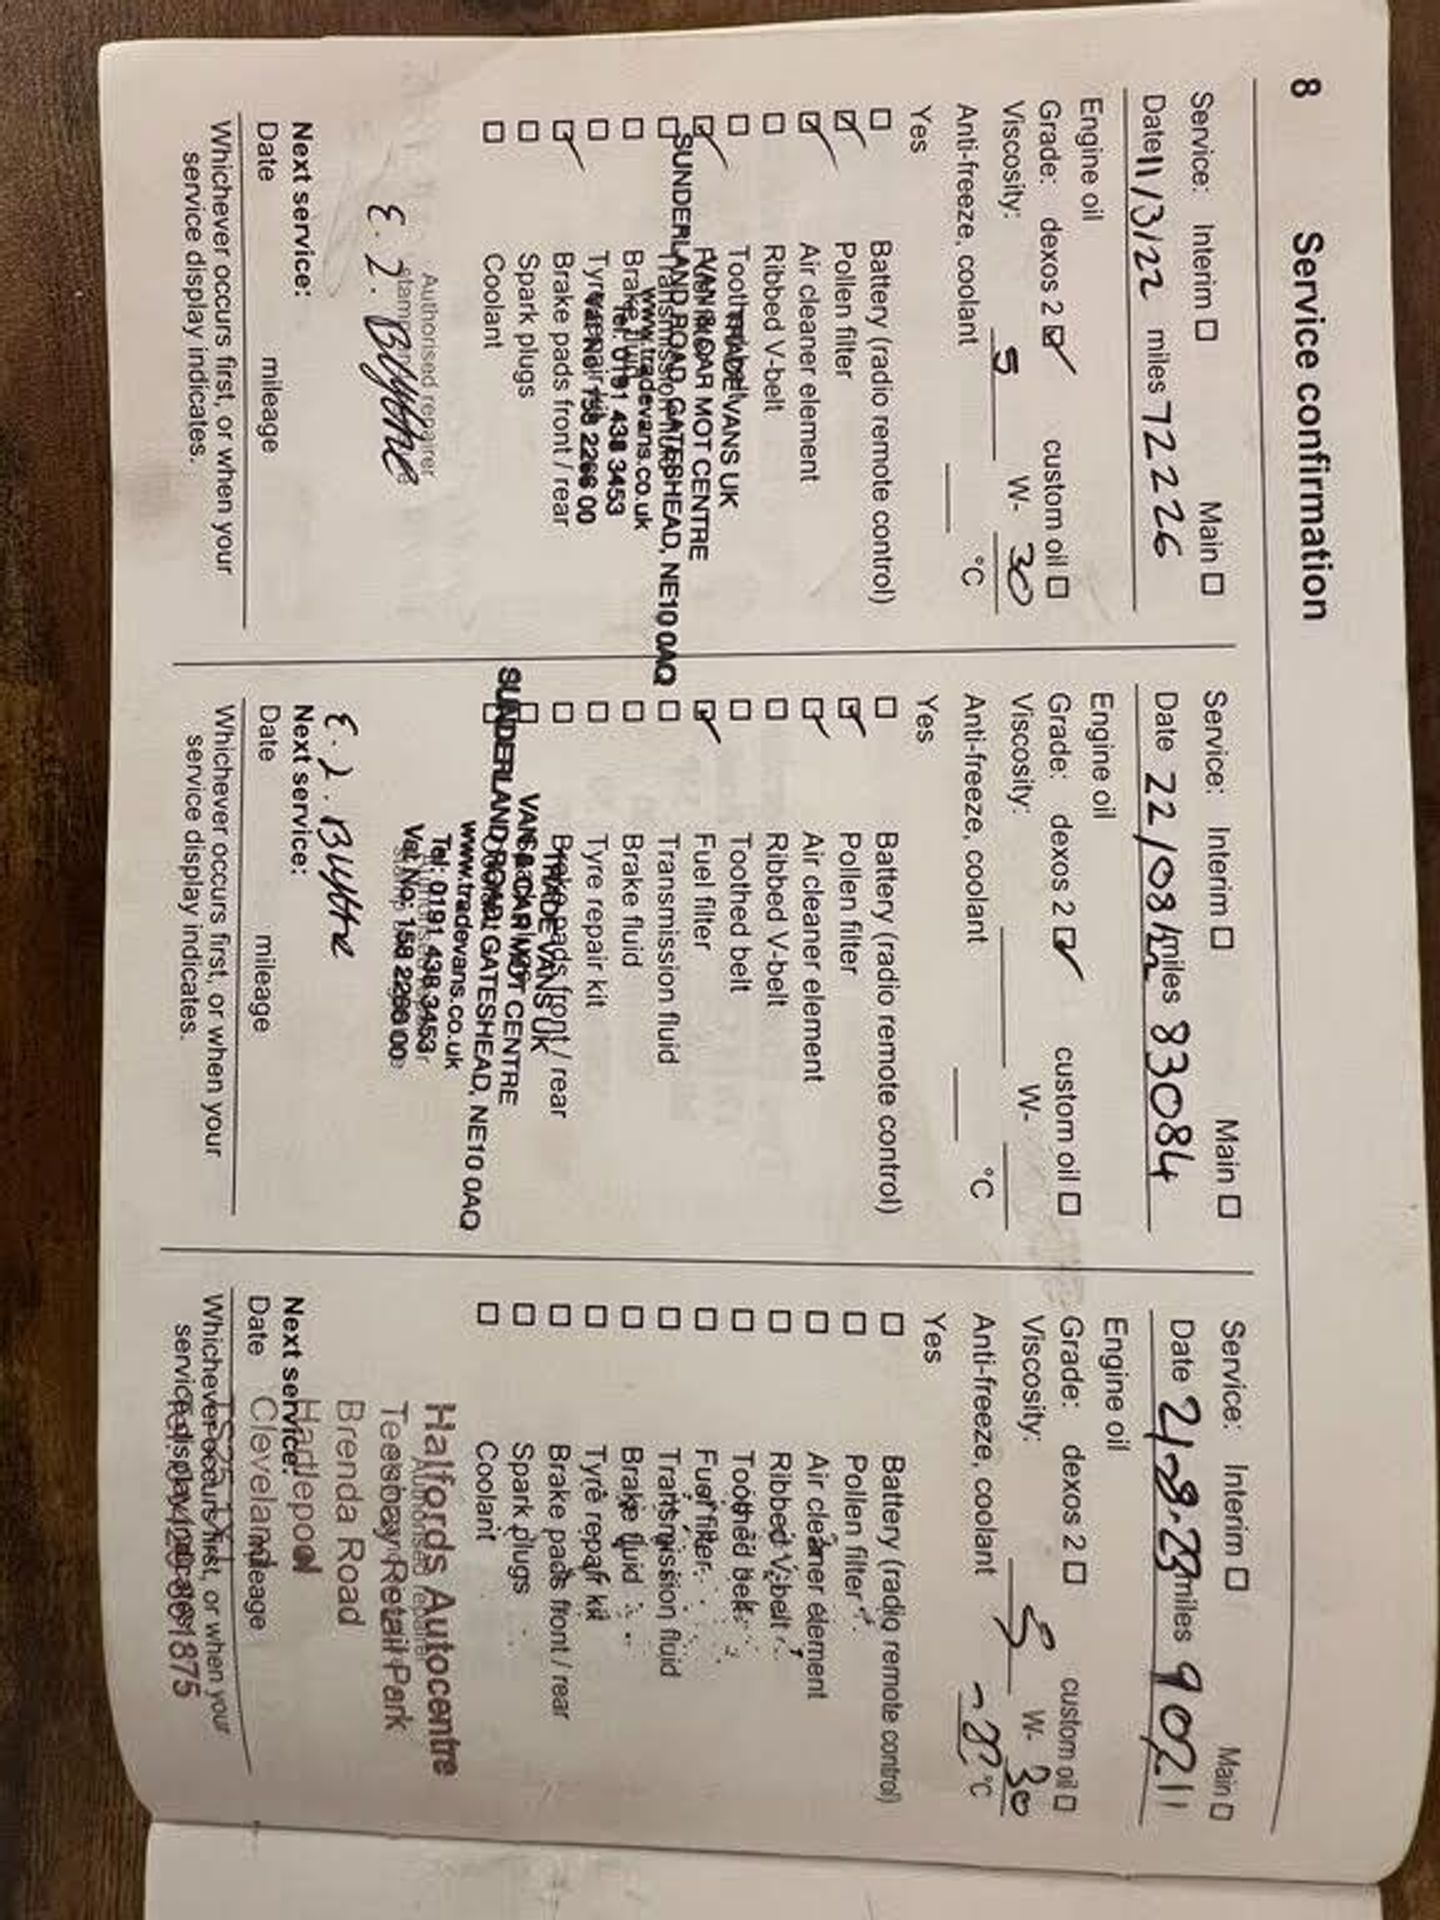 8 Service confirmation
Service: Interim ☐ Main ☐
Date 11/3/22 miles 72226
Engine oil
Grade: dexos 2 ☑ custom oil ☐
Viscosity: 5 W- 30
Anti-freeze, coolant °C
Yes
☐ Battery (radio remote control)
☑ Pollen filter
☑ Air cleaner element
☐ Ribbed V-belt
☐ Toothed belt
☑ Fuel filter
☐ Transmission fluid
☐ Brake fluid
☐ Tyre repair kit
☑ Brake pads front / rear
☐ Spark plugs
☐ Coolant
TRADE VANS UK
VAN & CAR MOT CENTRE
SUNDERLAND ROAD, GATESHEAD, NE10 0AQ
www.tradevans.co.uk
Tel: 0191 438 3453
Vat No: 158 2266 00
Authorised repairer
stamp
Next service:
Date mileage
Whichever occurs first, or when your
service display indicates.
Service: Interim ☐ Main ☐
Date 22/08/22 miles 83084
Engine oil
Grade: dexos 2 ☑ custom oil ☐
Viscosity: W-
Anti-freeze, coolant °C
Yes
☐ Battery (radio remote control)
☑ Pollen filter
☑ Air cleaner element
☐ Ribbed V-belt
☐ Toothed belt
☑ Fuel filter
☐ Transmission fluid
☐ Brake fluid
☐ Tyre repair kit
☐ Brake pads front / rear
☐ Spark plugs
☐ Coolant
TRADE VANS UK
VAN & CAR MOT CENTRE
SUNDERLAND ROAD, GATESHEAD, NE10 0AQ
www.tradevans.co.uk
Tel: 0191 438 3453
Vat No: 158 2266 00
Next service:
Date mileage
Whichever occurs first, or when your
service display indicates.
Service: Interim ☐ Main ☐
Date miles 90211
Engine oil
Grade: dexos 2 ☐ custom oil ☐
Viscosity: 5 W- 30
Anti-freeze, coolant °C
Yes
☐ Battery (radio remote control)
☐ Pollen filter
☐ Air cleaner element
☐ Ribbed V-belt
☐ Toothed belt
☐ Fuel filter
☐ Transmission fluid
☐ Brake fluid
☐ Tyre repair kit
☐ Brake pads front / rear
☐ Spark plugs
☐ Coolant
Halfords Autocentre
Authorised repairer
Teesbay Retail Park
Brenda Road
Hartlepool
Cleveland
Next service:
Date mileage
Whichever occurs first, or when your
service display indicates.